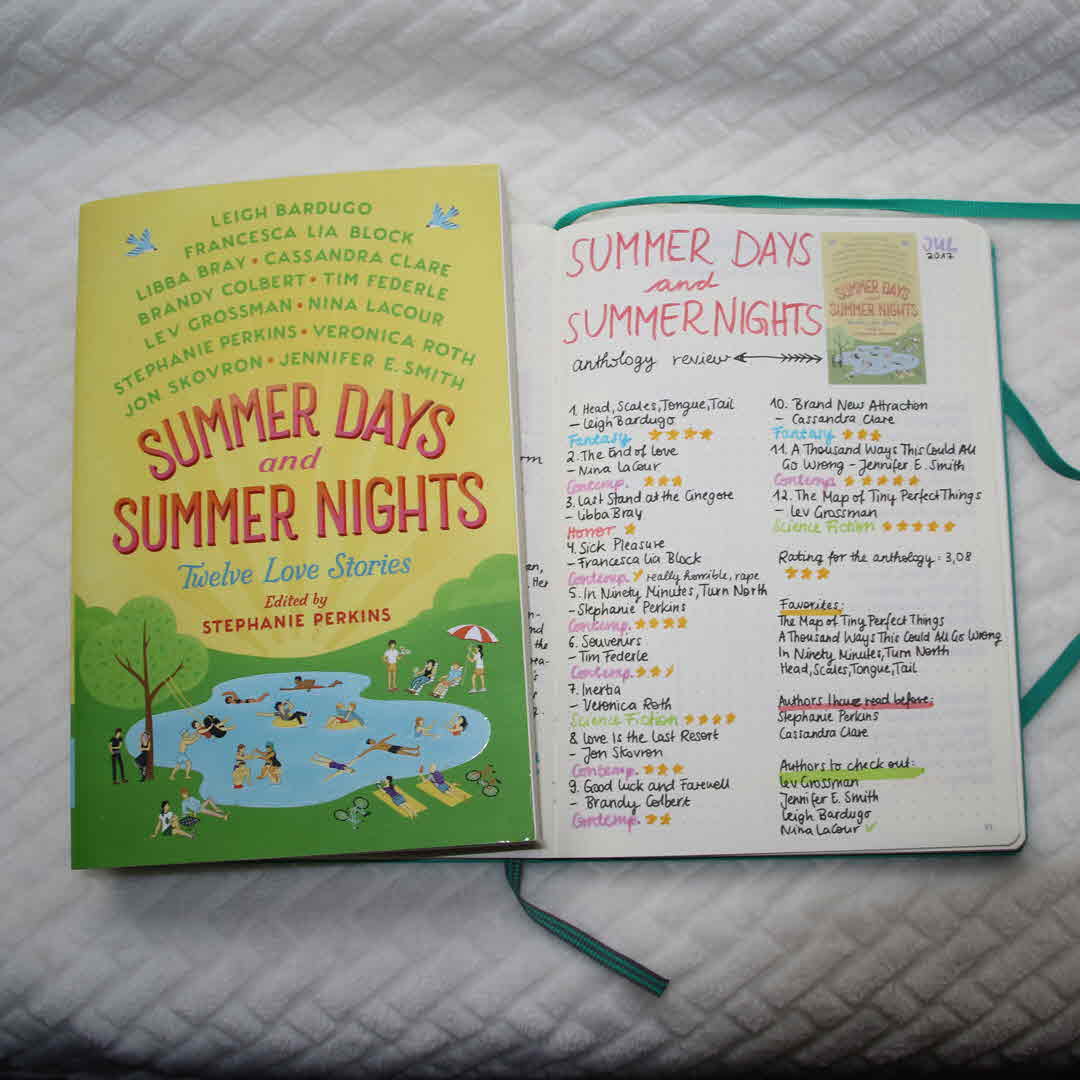 LEIGH BARDUGO
FRANCESCA LIA BLOCK
LIBBA BRAY • CASSANDRA CLARE
BRANDY COLBERT • TIM FEDERLE
LEV GROSSMAN • NINA LACOUR
STEPHANIE PERKINS • VERONICA ROTH
JON SKOVRON • JENNIFER E. SMITH
SUMMER DAYS
and
SUMMER NIGHTS
Twelve Love Stories
Edited by
STEPHANIE PERKINS
SUMMER DAYS
and
SUMMER NIGHTS
anthology review
SUMMER DAYS
SUMMER NIGHTS
JUL
2017
1. Head, Scales, Tongue, Tail
- Leigh Bardugo
Fantasy
2. The End of Love
- Nina LaCour
Contemp.
3. Last Stand at the Cinegore
- Libba Bray
Horror
4. Sick Pleasure
- Francesca Lia Block
Contemp. really horrible, rape
5. In Ninety Minutes, Turn North
- Stephanie Perkins
Contemp.
6. Souvenirs
- Tim Federle
Contemp.
7. Inertia
- Veronica Roth
Science Fiction
8. Love Is the Last Resort
- Jon Skovron
Contemp.
9. Good Luck and Farewell
- Brandy Colbert
Contemp.
10. Brand New Attraction
- Cassandra Clare
Fantasy
11. A Thousand Ways This Could All
Go Wrong - Jennifer E. Smith
Contemp
12. The Map of Tiny Perfect Things
- Lev Grossman
Science Fiction
Rating for the anthology: 3,08
Favorites:
The Map of Tiny Perfect Things
A Thousand Ways This Could All Go Wrong
In Ninety Minutes, Turn North
Head, Scales, Tongue, Tail
Authors I have read before:
Stephanie Perkins
Cassandra Clare
Authors to check out:
Lev Grossman
Jennifer E. Smith
Leigh Bardugo
Nina LaCour